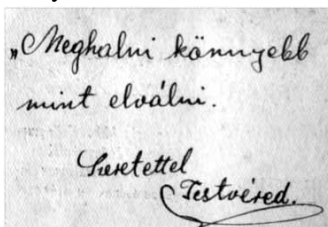 „Meghalni könnyebb
mint elválni.
Szeretettel
Testvéred.